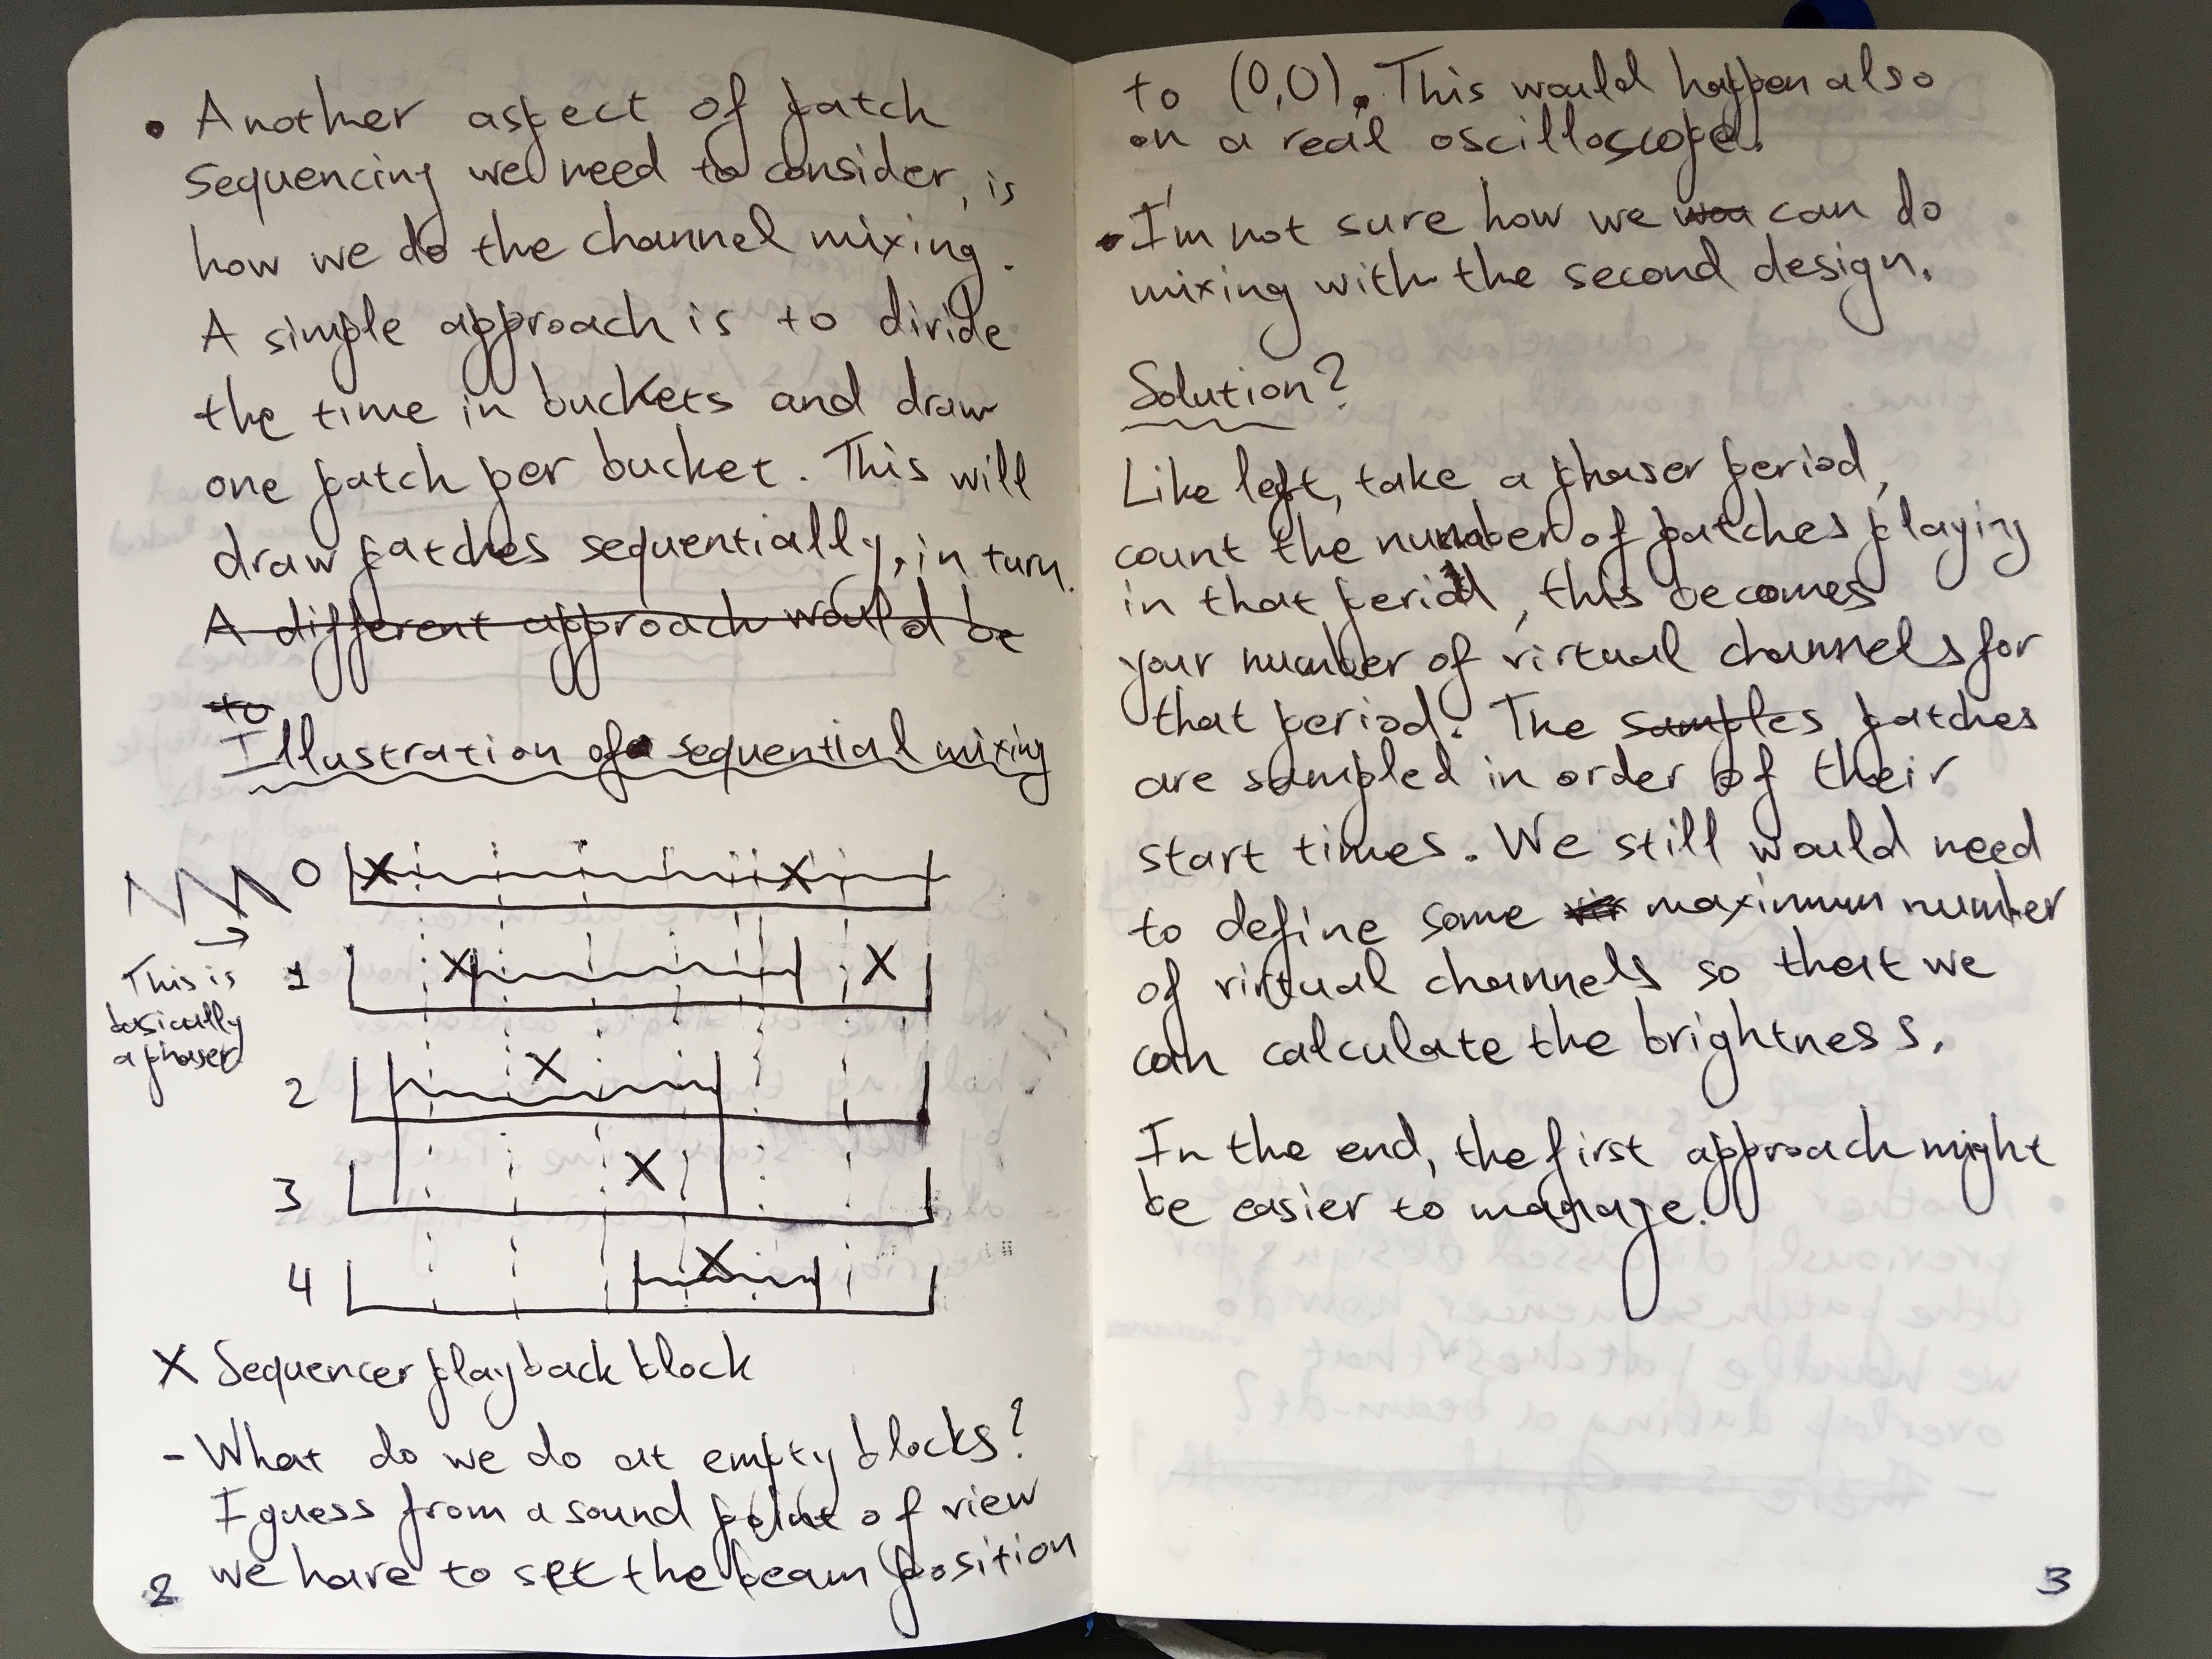 • Another aspect of patch
sequencing we need to consider, is
how we do the channel mixing.
A simple approach is to divide
the time in buckets and draw
one patch per bucket. This will
draw patches sequentially, in turn.
A different approach would be
to
Illustration of sequential mixing
0
1
2
3
4
This is
basically
a phaser
X Sequencer playback block
- What do we do at empty blocks?
I guess from a sound point of view
we have to set the beam position
2
to (0,0). This would happen also
on a real oscilloscope.
• I'm not sure how we can do
mixing with the second design.
Solution?
Like left, take a phaser period,
count the number of patches playing
in that period, this becomes
your number of virtual channels for
that period. The samples patches
are sampled in order of their
start times. We still would need
to define some maximum number
of virtual channels so that we
can calculate the brightness.
In the end, the first approach might
be easier to manage.
3